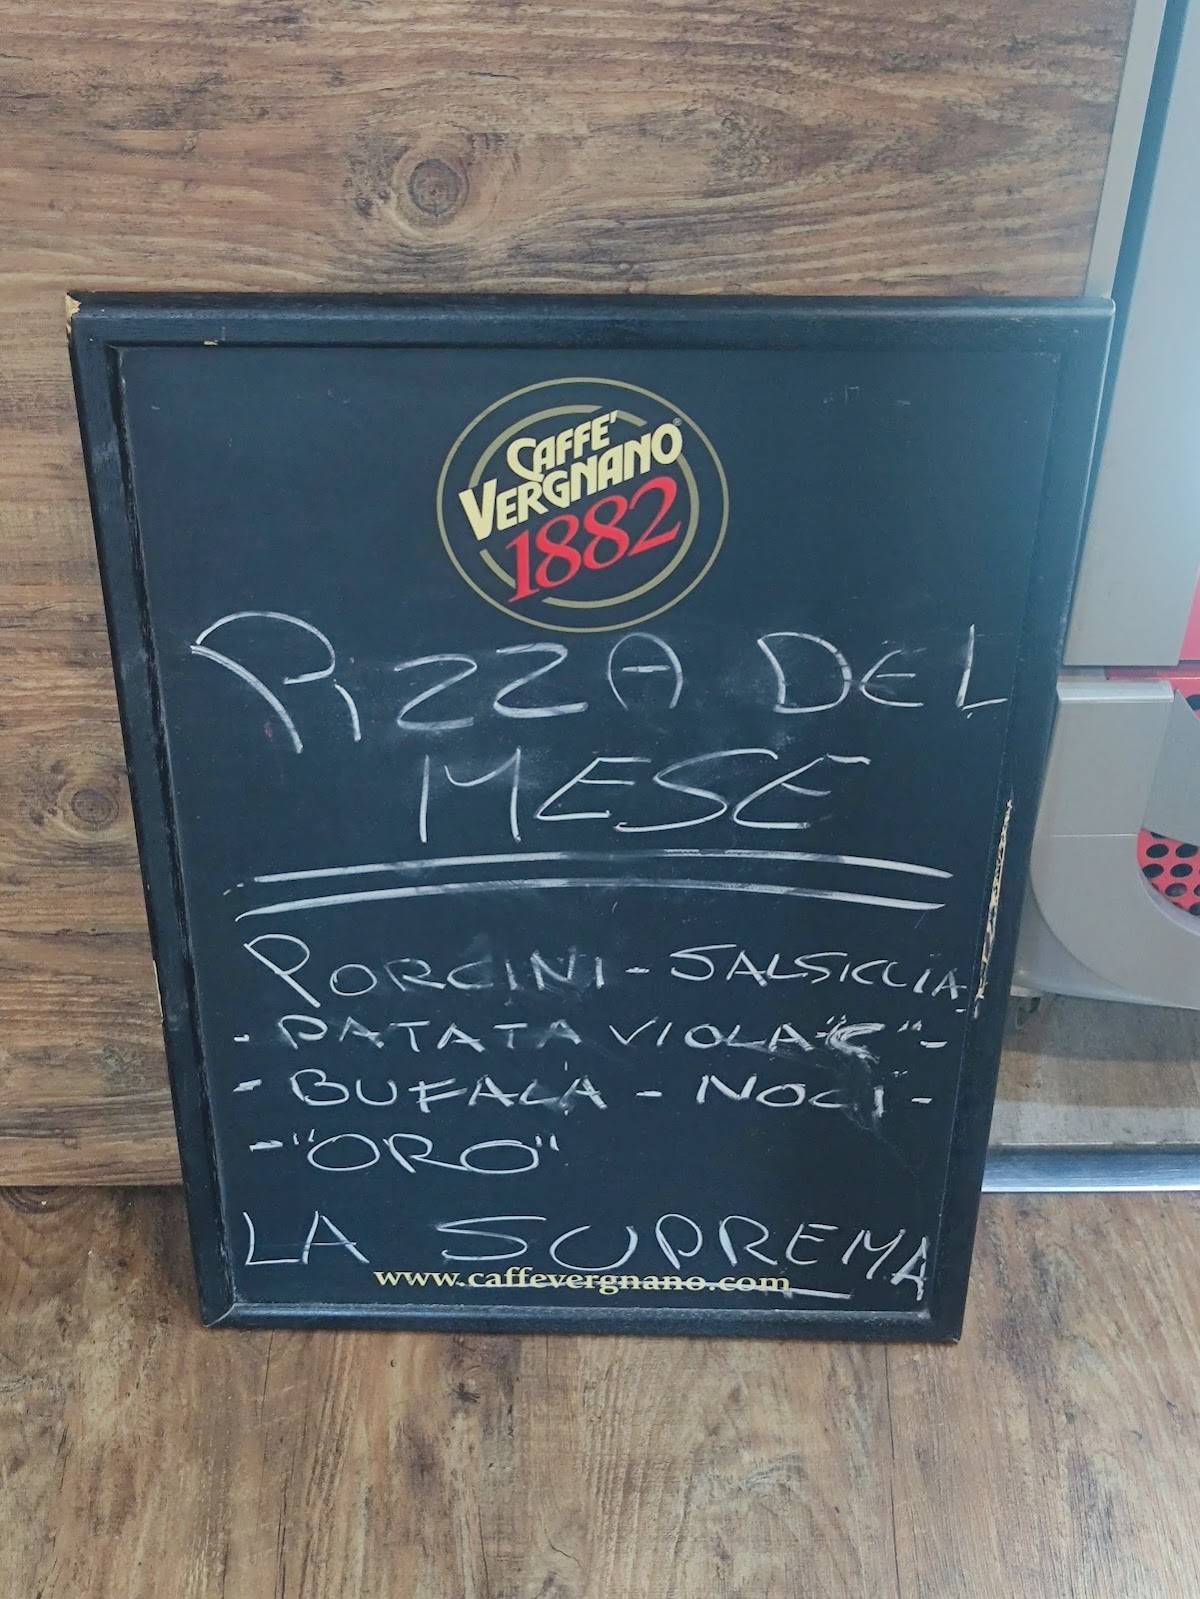 CAFFE'
VERGNANO®
1882
PIZZA DEL
MESE
PORCINI - SALSICCIA
- PATATA VIOLA "C" -
- BUFALA - NOCI -
- "ORO"
LA SUPREMA
www.caffevergnano.com